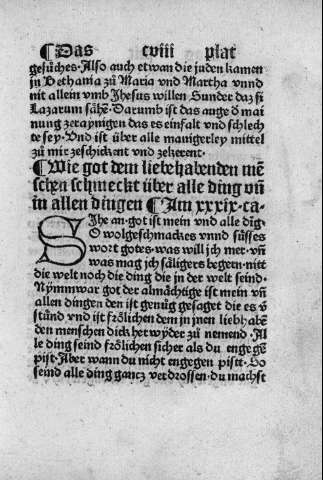 ¶ Das cviii plat
gesuͦches. Also auch etwan die juden kamen
in Bethania zuͦ Maria vnd Martha vnnd
nit allein vmb Jhesus willen Sunder daz si
Lazarum sähē. Darumb ist das auge d̄ mai
nung zeraynigen das es einfalt vnd schlech
te sey. Vnd ist über alle manigerley mittel
zuͦ mir zeschickent vnd zekerent.
¶ Wie got dem liebehabenden mē
schen schmeckt über alle ding vn̄
in allen dingen ¶ Am xxxix. ca.
SJhe an. got ist mein vnd alle dīg.
O wolgeschmackes vnnd süsses
wort gotes. was will ich mer. vn̄
was mag ich säligers begern. nitt
die welt noch die ding die in der welt seind.
Nymm war got der almächtige ist mein vn̄
allen dingen den ist genuͦg gesaget die es v̄
stānd vnd ist frölichen dem in jnen liebhabē
den menschen dick herwyder zuͦ nemend. Al
le ding seind frölichen sicher als du engegē
pist. Aber wann du nicht engegen pist. So
seind alle ding gancz verdrossen. du machst